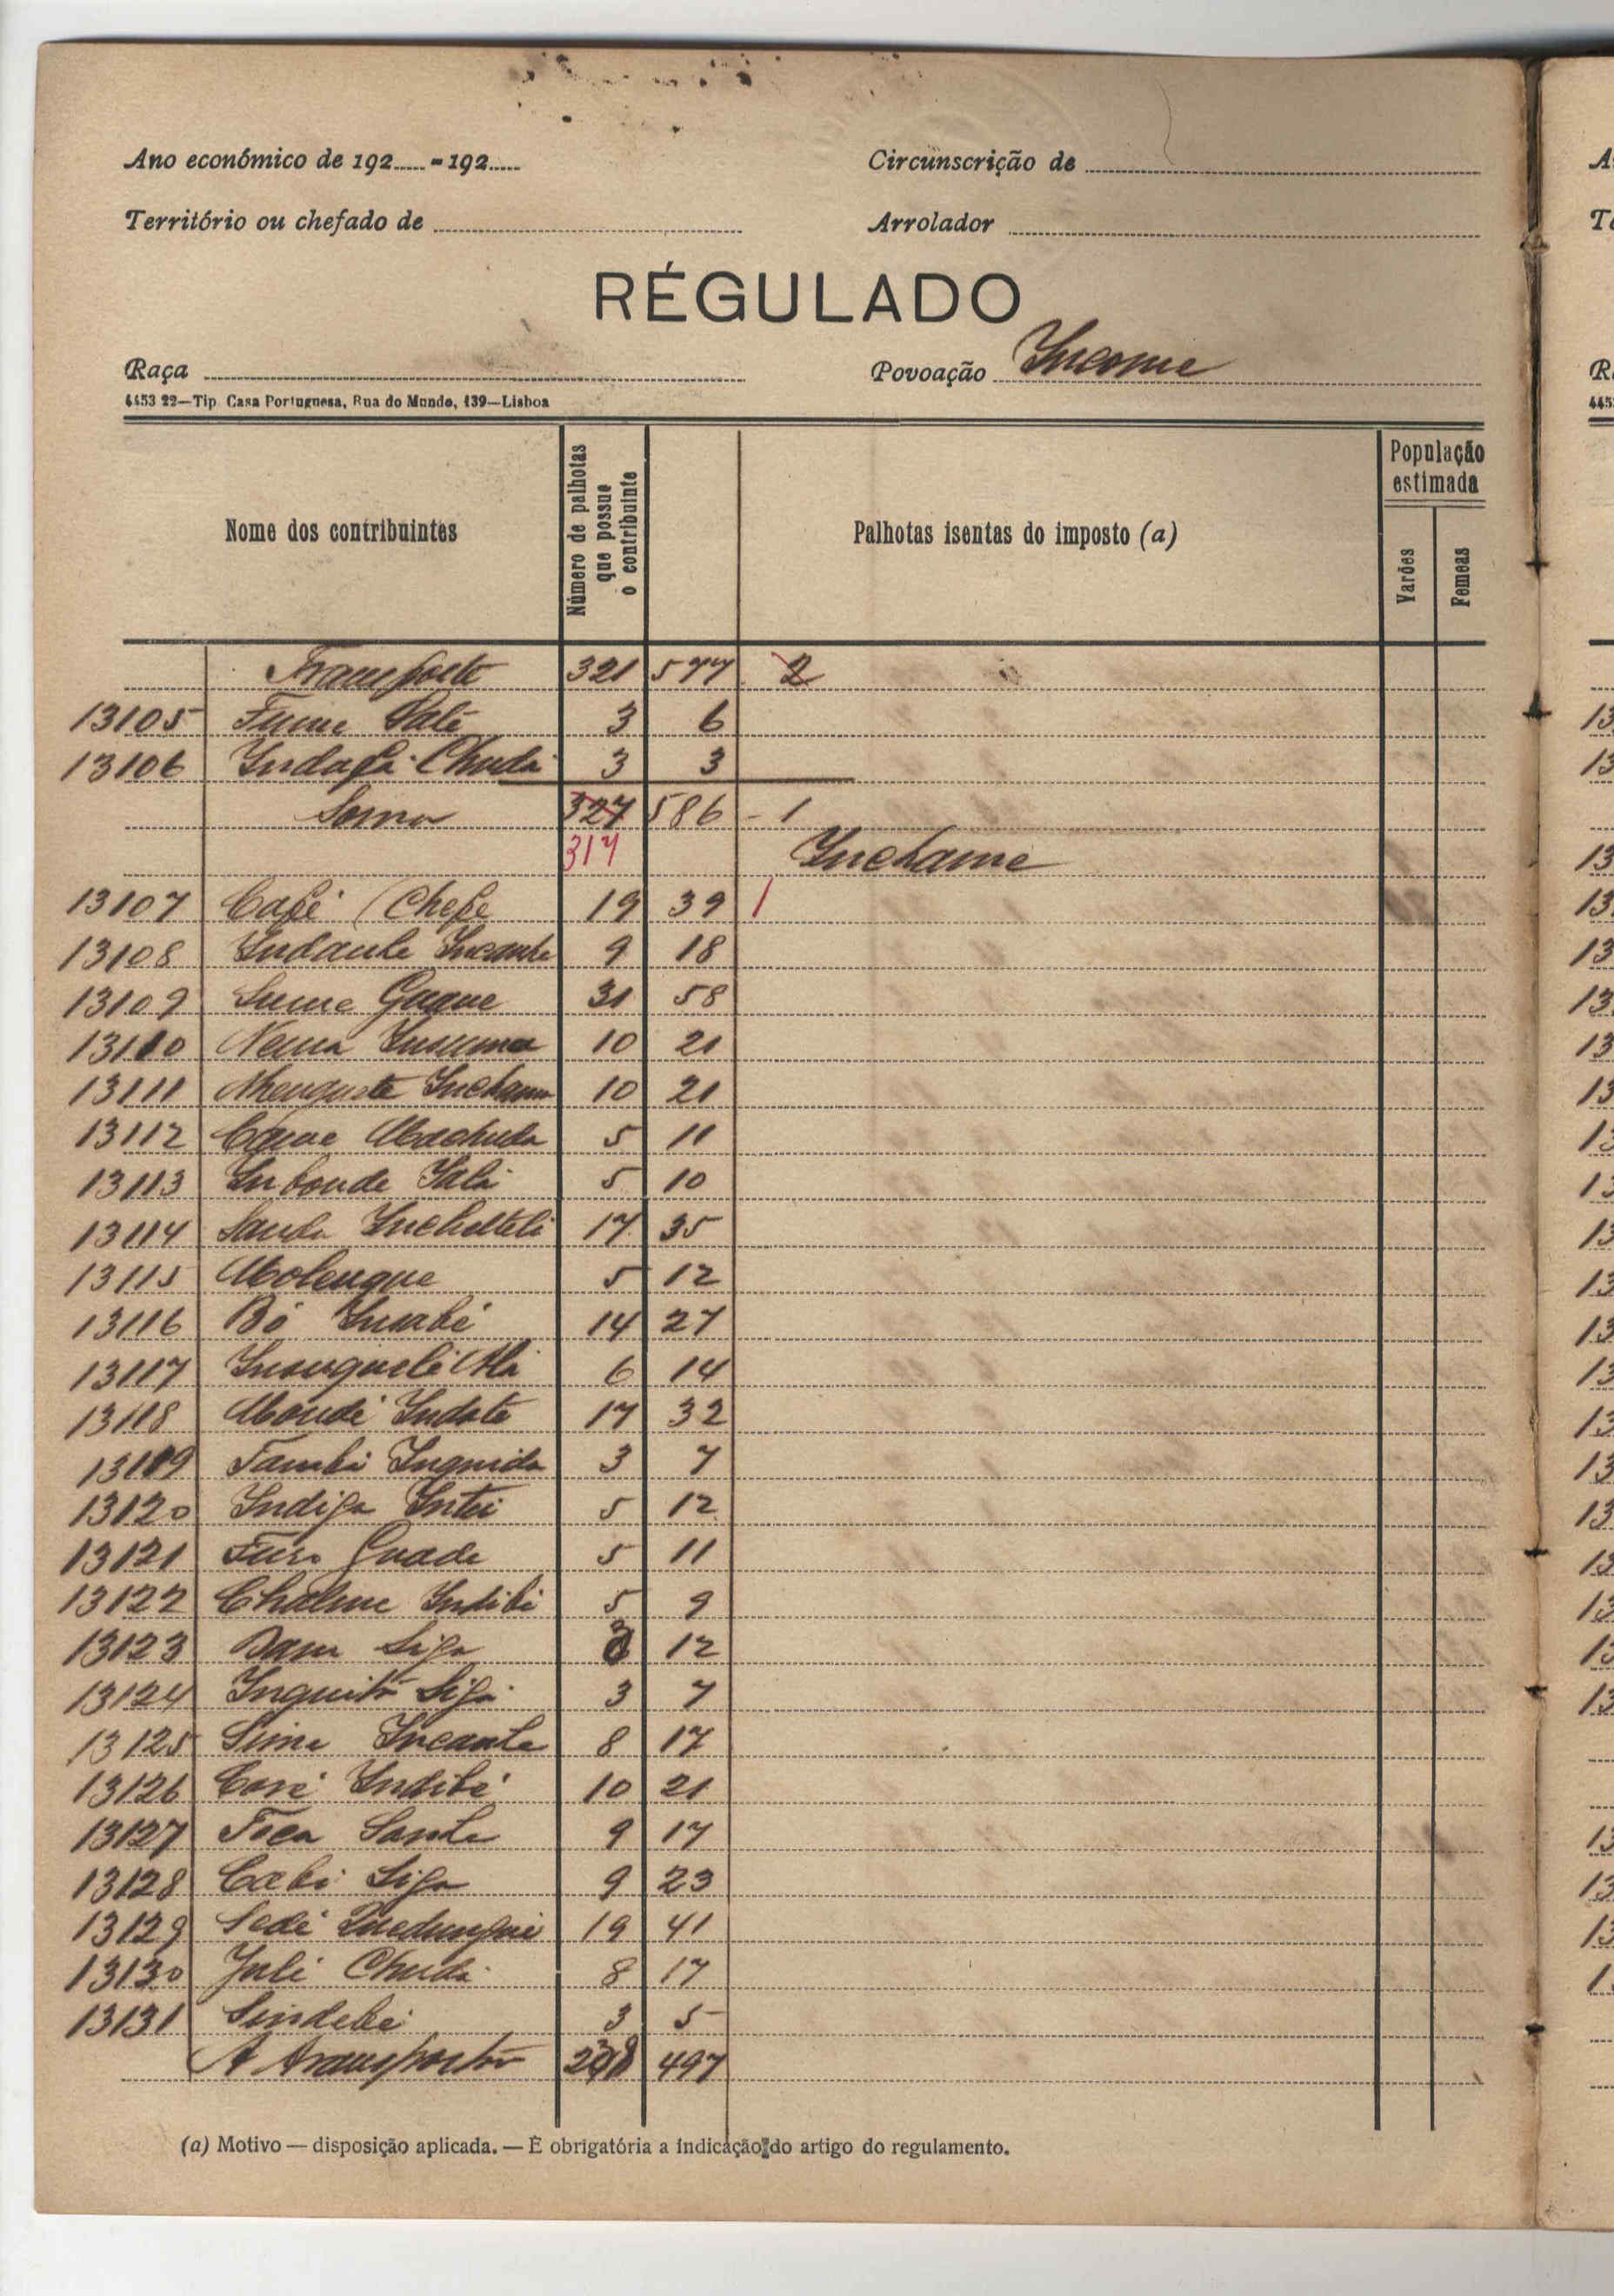 Ano económico de 192..... - 192.....
Circunscrição de
Território ou chefado de
Arrolador
RÉGULADO
Raça
Povoação Income
4453 22—Tip. Casa Portuguesa, Rua do Mundo, 139—Lisboa
Nome dos contribuintes
Número de palhotas que possue o contribuinte
Palhotas isentas do imposto (a)
População estimada
Varões
Femeas
Transporte 321 577 2
13105 Fume Salé 3 6
13106 Indafá Chuda 3 3
Soma 327 586 - 1
317 Inchame
13107 Café (Chefe 19 39 1
13108 Indaule Incante 9 18
13109 Sume Guane 31 58
13110 Nema 10 21
13111 Inchame 10 21
13112 Machuda 5 11
13113 Imbonde Salá 5 10
13114 Sanda 17 35
13115 Molengue 5 12
13116 Bó 14 27
13117 6 14
13118 Mondé Indate 17 32
13119 Tambá Inquida 3 7
13120 Indiga Intei 5 12
13121 Fuso Guade 5 11
13122 Indibi 5 9
13123 Dam Siga 3 12
13124 Inquité Siga 3 7
13125 Sima Incante 8 17
13126 Coné Indibé 10 21
13127 Foca Sante 9 17
13128 Cabi Siga 9 23
13129 Sedé 19 41
13130 Julé Chuda 8 17
13131 Sindebé 3 5
A transportar 238 497
(a) Motivo — disposição aplicada. — É obrigatória a indicação do artigo do regulamento.